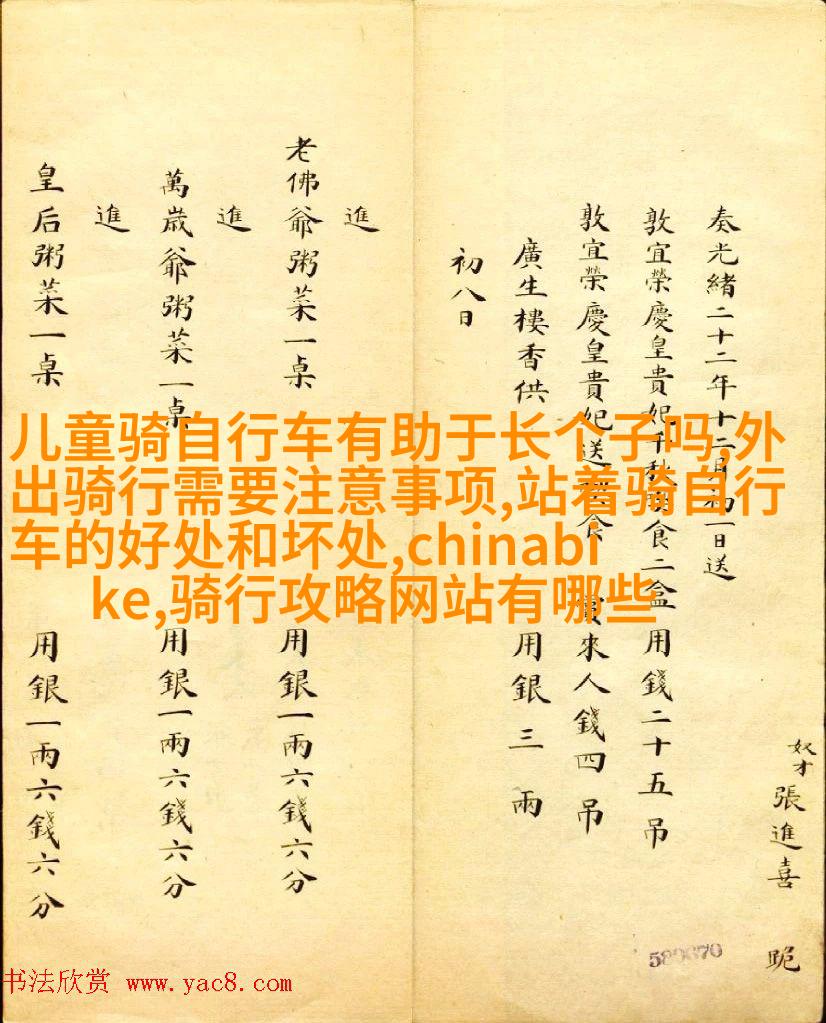 奴才張進喜 跪
奏光緒二十二年十二月初一日送
敦宜榮慶皇貴妃千秋 食二盒 用錢二十五吊
敦宜榮慶皇貴妃送 食 賞來人錢四吊
廣生樓香供 用銀三兩
初八日
進
老佛爺粥菜一桌 用銀一兩六錢六分
進
萬歲爺粥菜一桌 用銀一兩六錢六分
進
皇后粥菜一桌 用銀一兩六錢六分
儿童骑自行车有助于长个子吗,外
出骑行需要注意事项,站着骑自行
车的好处和坏处,chinabi
ke,骑行攻略网站有哪些
589670
书法欣赏 www.yac8.com